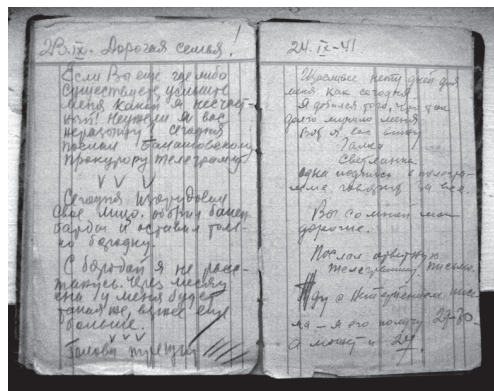 23.IX. Дорогая семья!
Если Вы еще где либо
существуете, услышьте
меня какой я несчаст-
ный! Неужели я вас
неразыщу. Сегодня
послал Балашовскому
прокурору телеграмму
V V V
Сегодня
свое лицо. обрил бакен-
барды и оставил толь-
ко бородку.
С бородой я не расс-
танусь. Через месяц
она у меня будет
такая же, а может еще
больше.
V V V
Голова трещит
24.IX-41
Счастливее нету дней для
меня как сегодня
Я добился того, что так
долго мучило меня
Вот я вас вижу
Галка
Светланка
одна подпись в телегра-
мме говорит за все.
Вы со мной мои
дорогие.
Послал ответную
телеграмму, письмо.
Жду с нетерпением пись-
ма - я его получу 29-30-
а может и 2